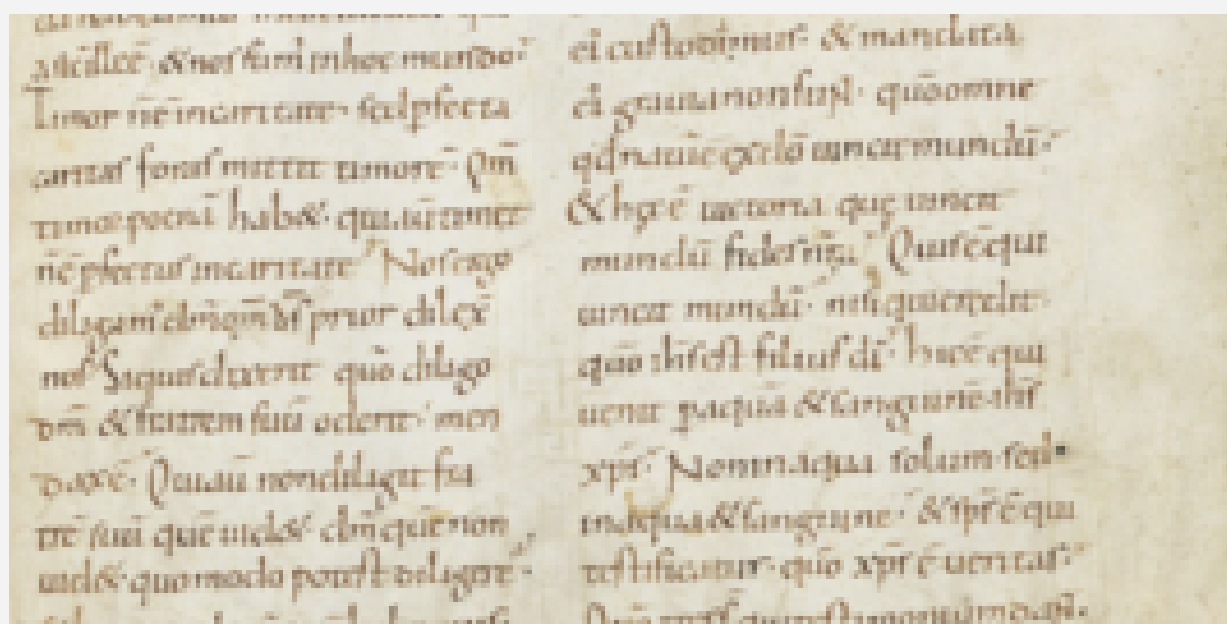 sic ille ē & nos sum̄ in hoc mundo·
Timor nē in caritate· sed pfecta
caritas foras mittit timorē· Qm̄
timor poenā hab&· qui aū timet
nē pfectus in caritate· Nos ergo
diligam̄ dm̄ qm̄ ds̄ prior dilex̄
nos· Si quis dixerit quō diligo
dm̄ & fratrem suū oderit· men
dax ē· Qui aū non diligit fra
trē suū quē uid& dm̄ quē non
uid& quomodo potest diligere·
ei custodimus· & mandata
ei grauia non sunt· quō omne
qd̄ natū ē ex dō uincit mundū·
& hęc ē uictoria quę uincit
mundū fides nr̄a· Quis ē qui
uincit mundū· nisi qui credit
quō ih̄s est filius dī· hic ē qui
uenit p aquā & sanguinē ih̄s
xp̄s· Non in aqua solum· sed
in aqua & sanguine· & sp̄s ē qui
testificatur· quō xp̄s ē ueritas·